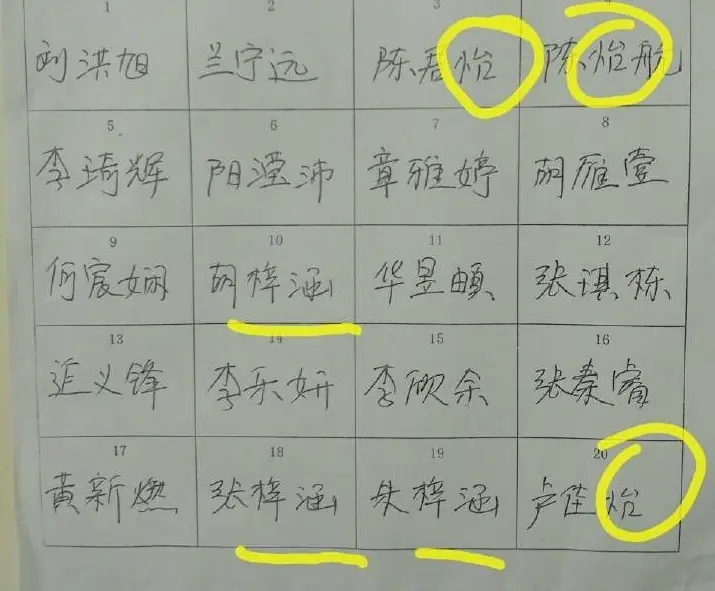 1 2 3 4
刘洪旭 兰宁远 陈君怡 陈怡航
5 6 7 8
李琦辉 阳滢沛 章雅婷 胡雁壹
9 10 11 12
何宸娴 胡梓涵 华昱頔 张琪栋
13 14 15 16
义锋 李乐妍 李欣余 张秦睿
17 18 19 20
黄新燃 张梓涵 朱梓涵 卢佳怡